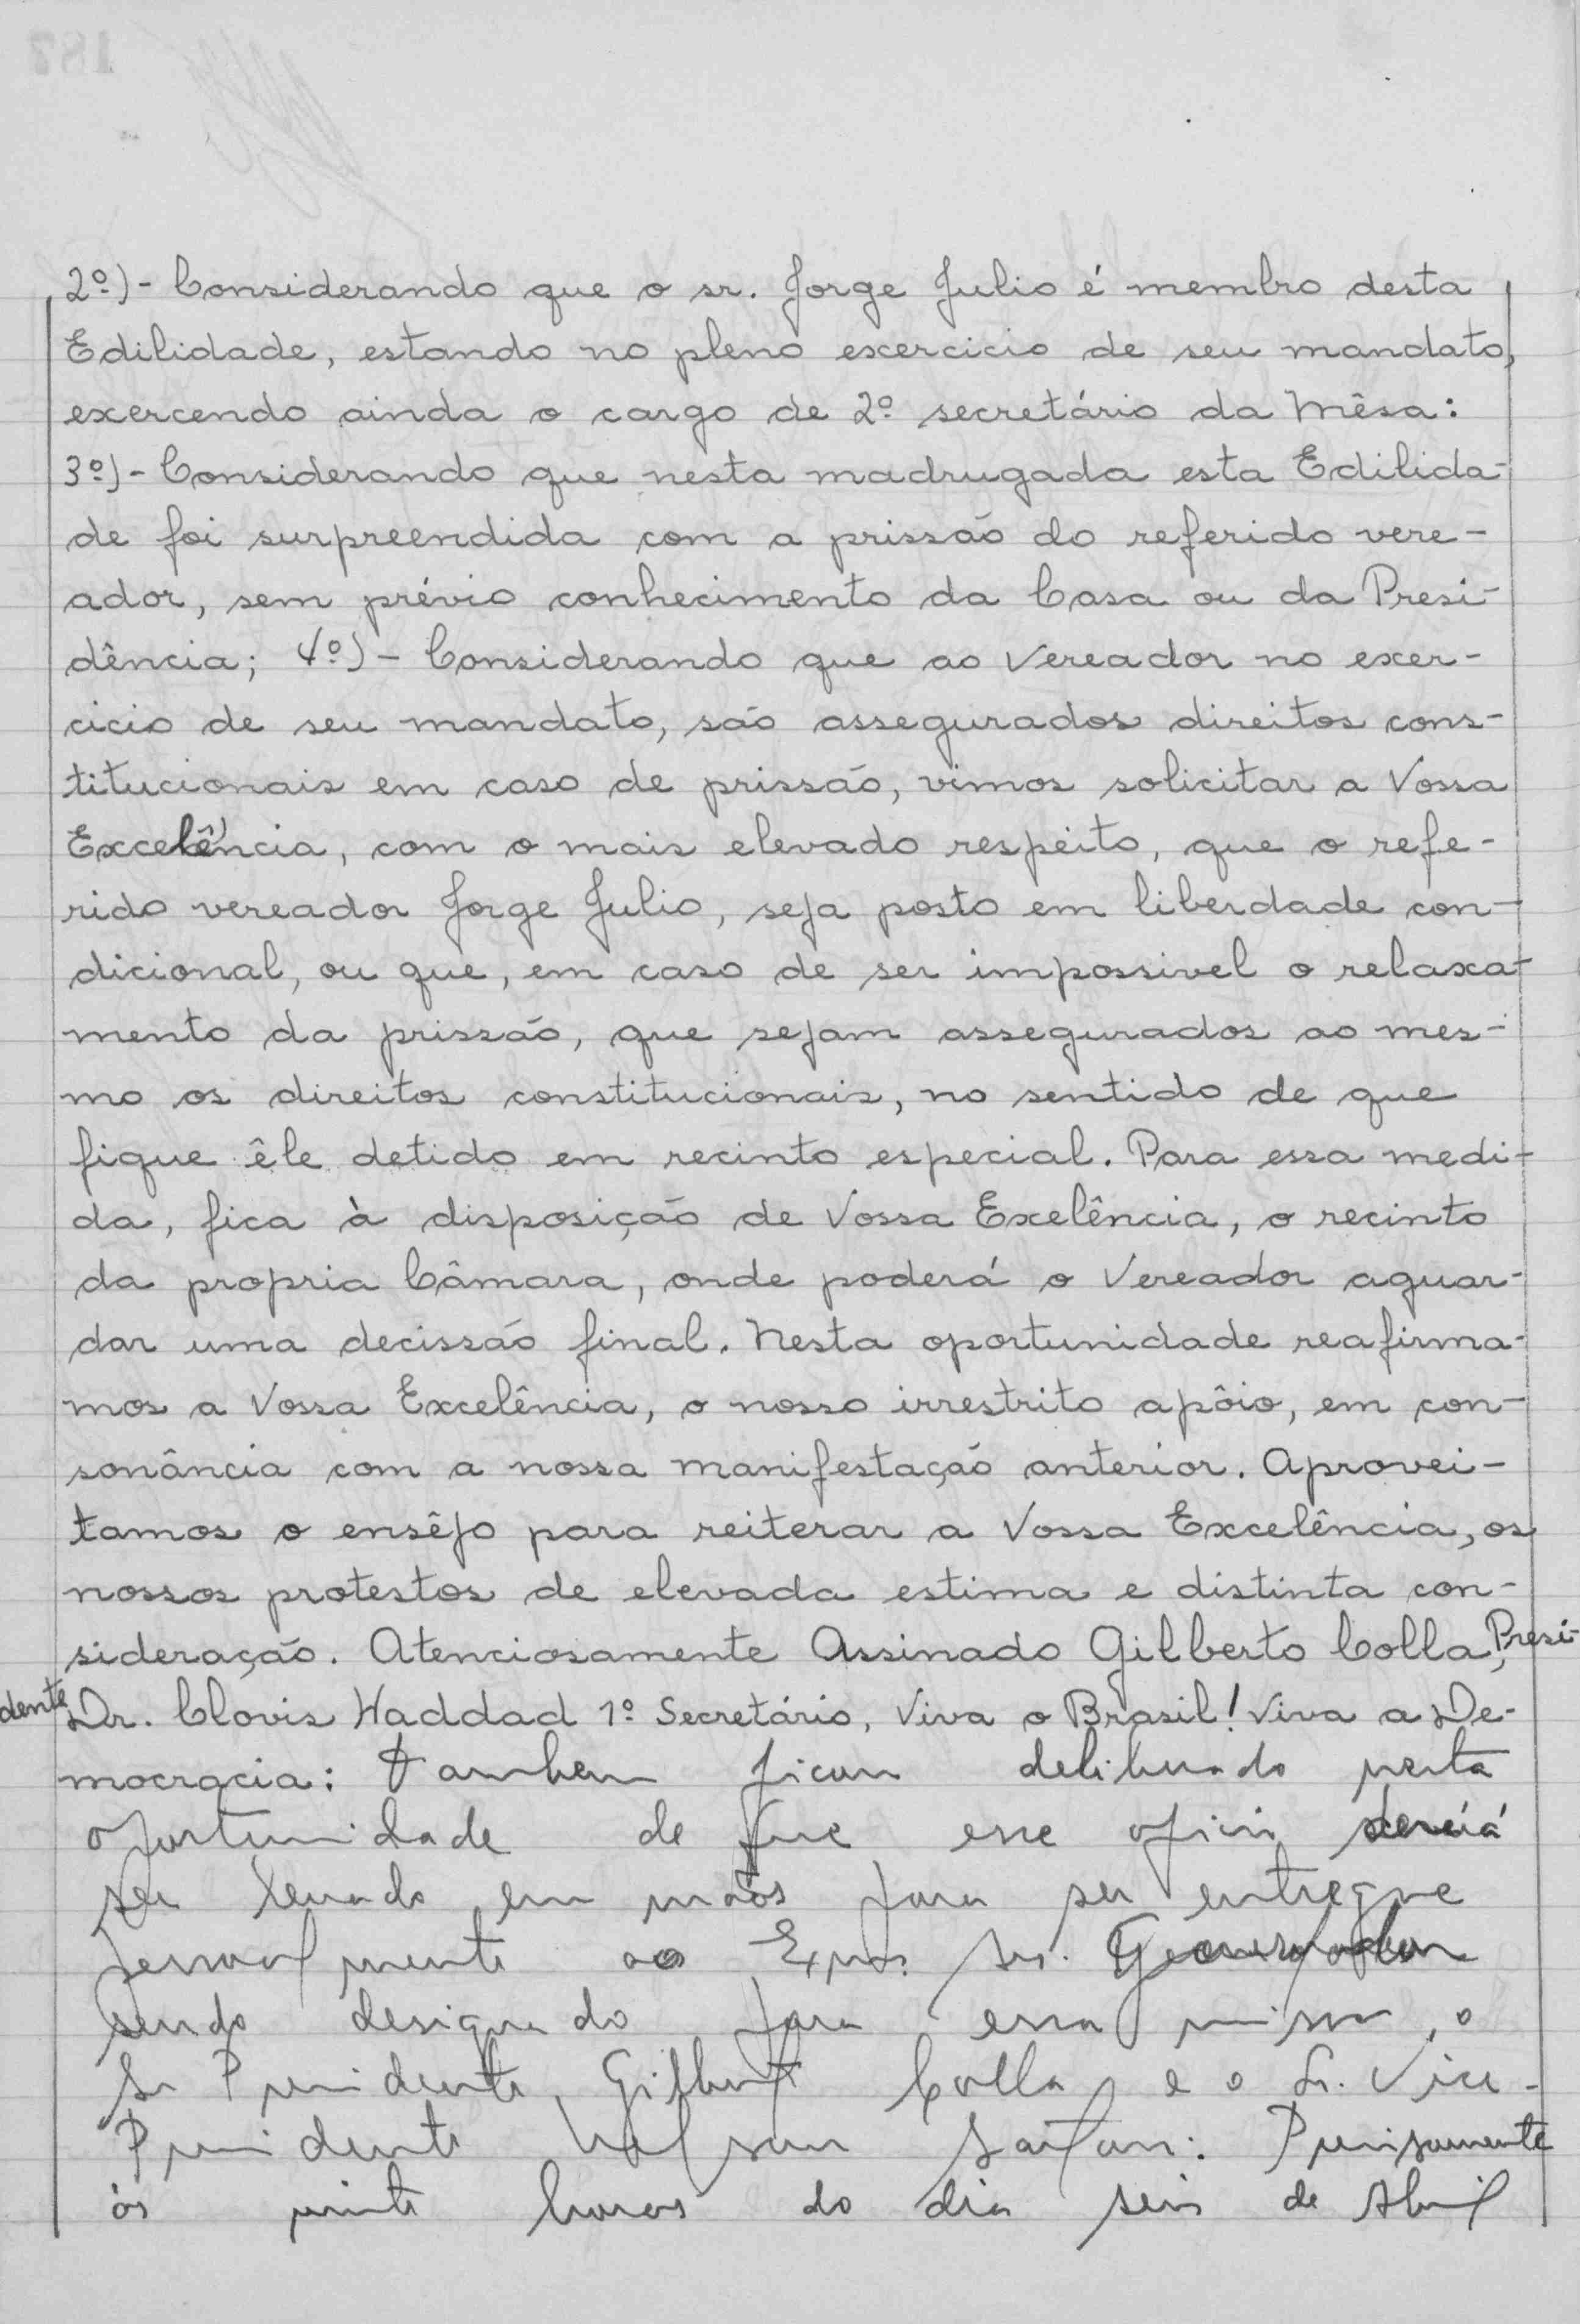 2º)- Considerando que o sr. Jorge Julio é membro desta
Edilidade, estando no pleno excercicio de seu mandato,
exercendo ainda o cargo de 2º secretário da Mêsa:
3º)- Considerando que nesta madrugada esta Edilida-
de foi surpreendida com a prissão do referido vere-
ador, sem prévio conhecimento da Casa ou da Presi-
dência; 4º)- Considerando que ao Vereador no exer-
cicio de seu mandato, são assegurados direitos cons-
titucionais em caso de prissão, vimos solicitar a Vossa
Excelência, com o mais elevado respeito, que o refe-
rido vereador Jorge Julio, seja posto em liberdade con-
dicional, ou que, em caso de ser impossivel o relaxa-
mento da prissão, que sejam assegurados ao mes-
mo os direitos constitucionais, no sentido de que
fique êle detido em recinto especial. Para essa medi-
da, fica à disposição de Vossa Exelência, o recinto
da propria Câmara, onde poderá o Vereador aguar-
dar uma decissão final. Nesta oportunidade reafirma-
mos a Vossa Excelência, o nosso irrestrito apôio, em con-
sonância com a nossa manifestação anterior. Aprovei-
tamos o ensêjo para reiterar a Vossa Excelência, os
nossos protestos de elevada estima e distinta con-
sideração. Atenciosamente Assinado Gilberto Colla, Presi-
dente Dr. Clóvis Haddad 1º Secretário, Viva o Brasil! Viva a De-
mocracia: Tambem ficou deliberado nesta
oportunidade de que esse oficio deverá
ser levado em mãos para ser entregue
pessoalmente ao Exmo. Sr. Governador
sendo designado para essa missão, o
Sr Presidente, Gilberto Colla e o Sr. Vice-
Presidente Nelson: Precisamente
ás vinte horas do dia seis de Abril
187